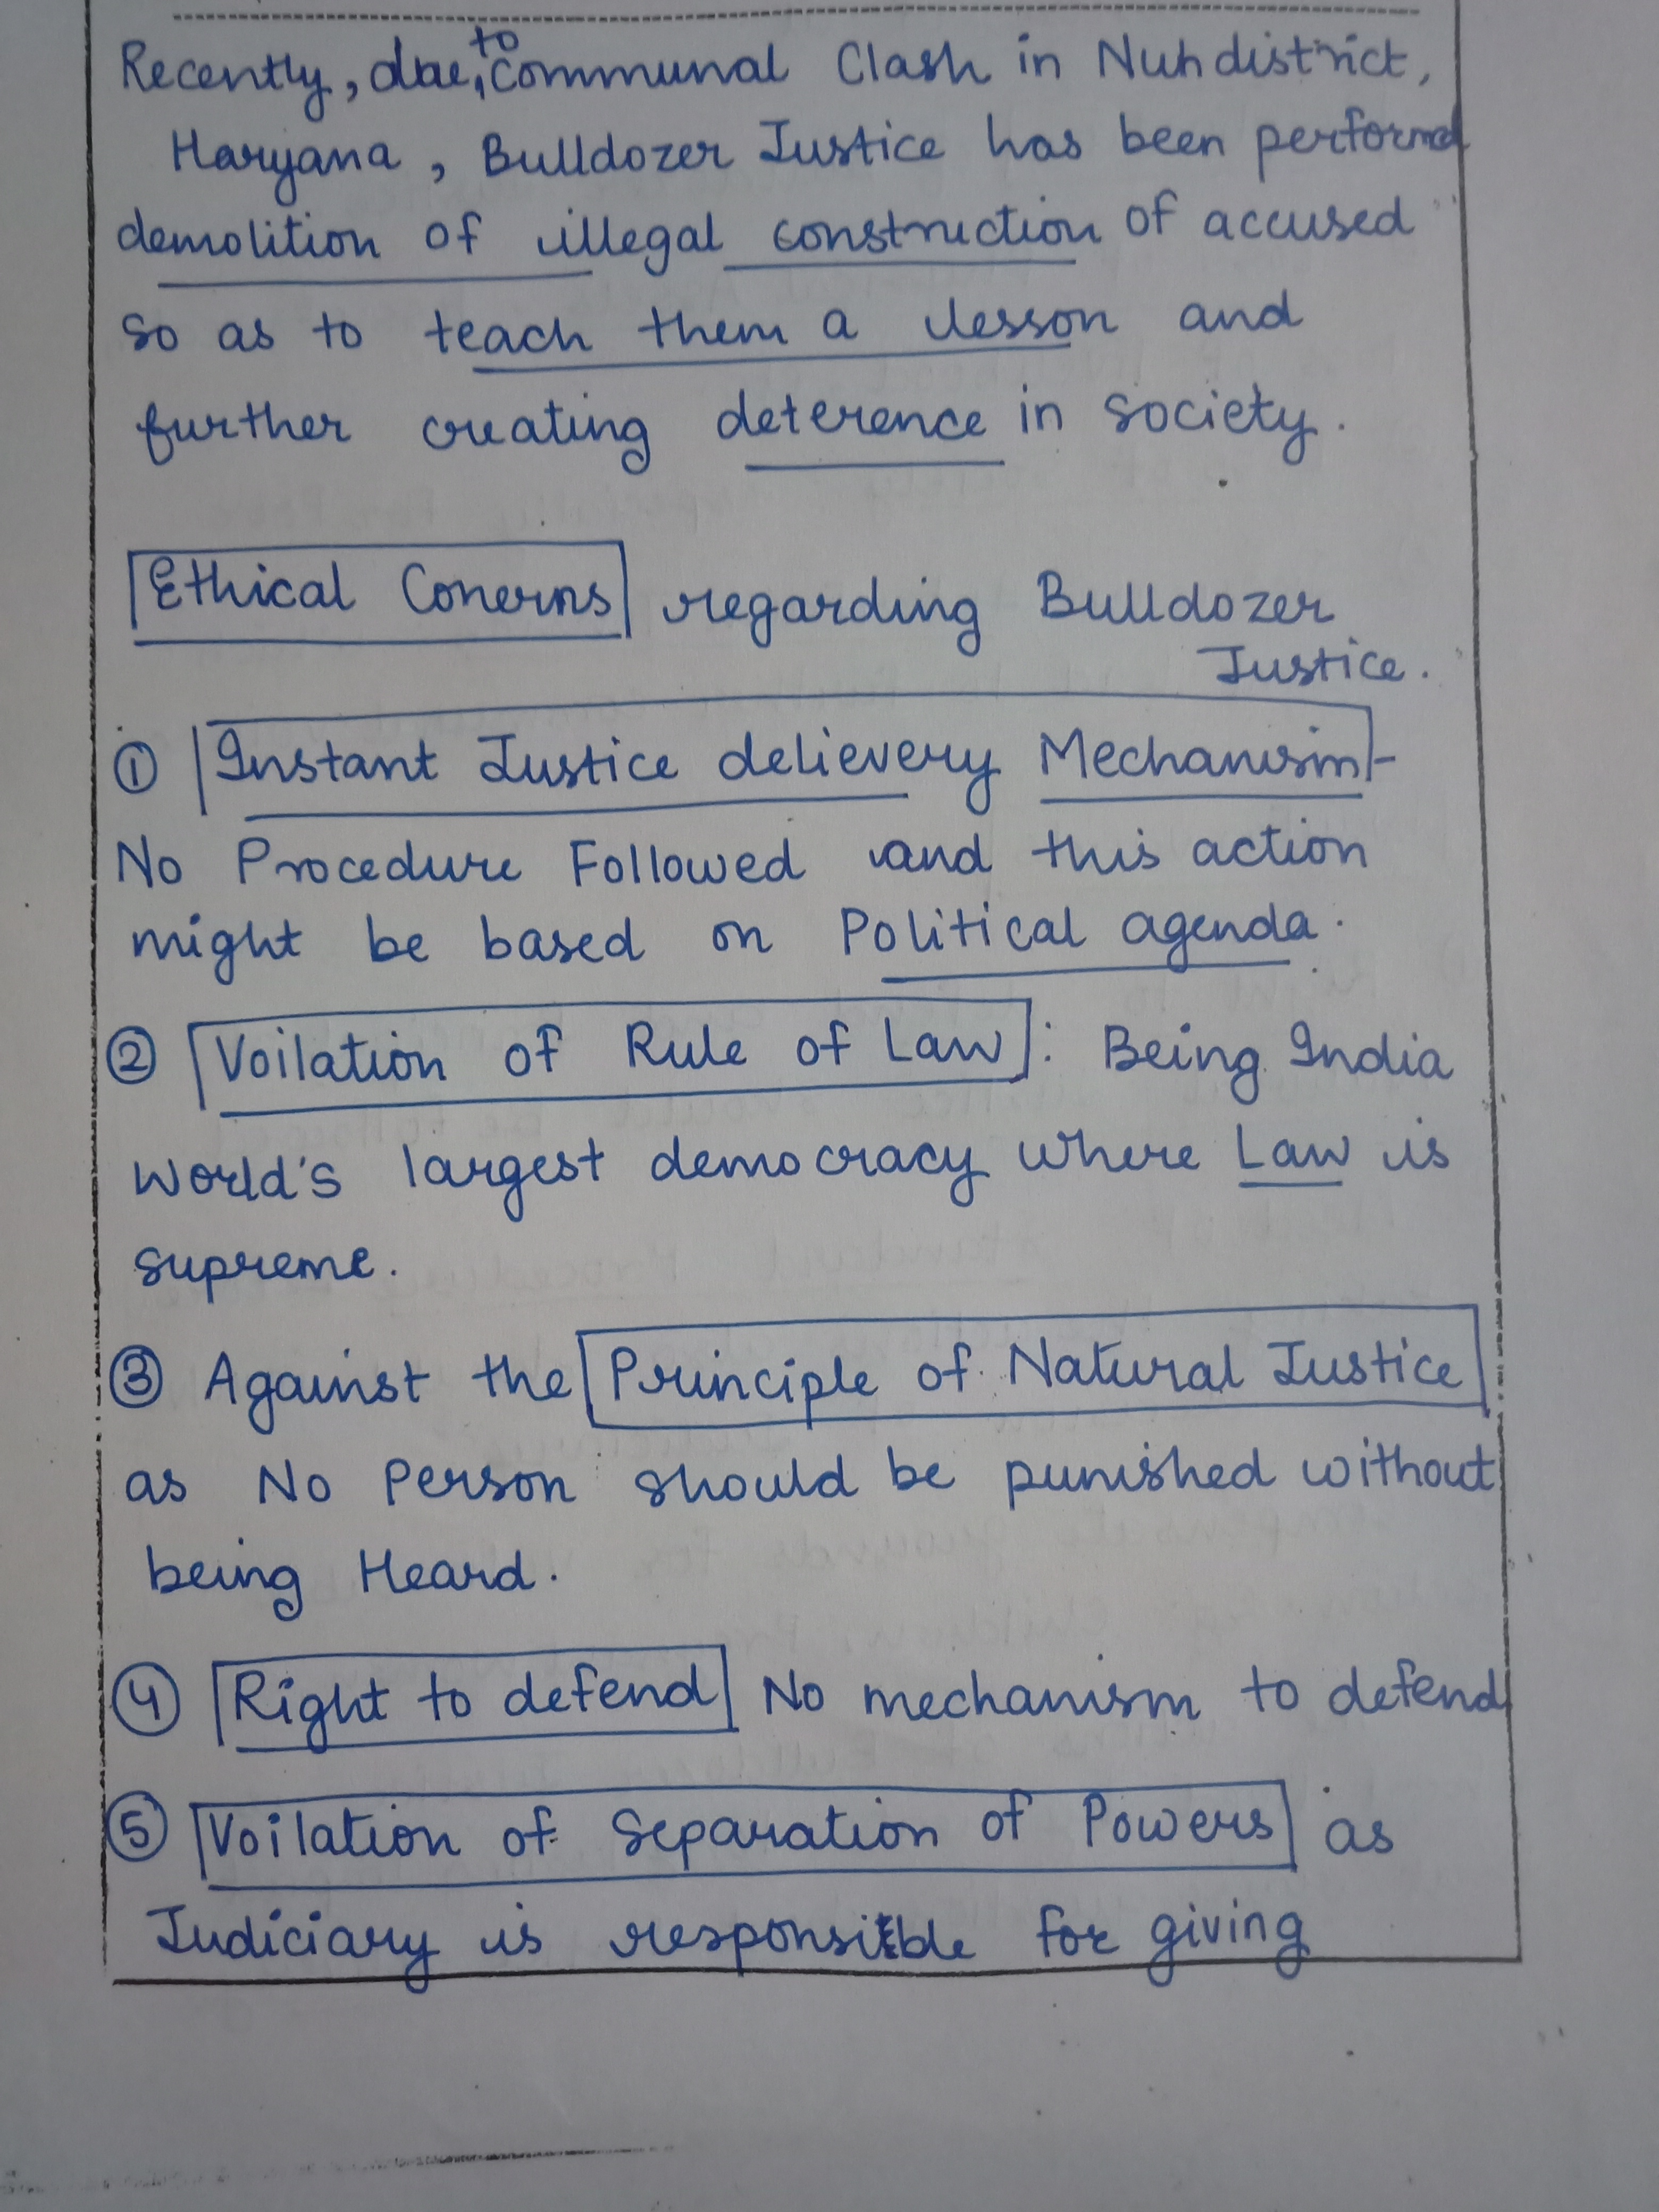 Recently, due to communal Clash in Nuh district,
Haryana, Bulldozer Justice has been performed
demolition of illegal construction of accused
so as to teach them a lesson and
further creating deterence in society.
Ethical Conerns regarding Bulldozer
Justice.
① Instant Justice delievery Mechanism-
No Procedure Followed and this action
might be based on Political agenda.
② Voilation of Rule of Law : Being India
World's largest democracy where Law is
supreme.
③ Against the Principle of Natural Justice
as No Person should be punished without
being Heard.
④ Right to defend No mechanism to defend
⑤ Voilation of Separation of Powers as
Judiciary is responsible for giving